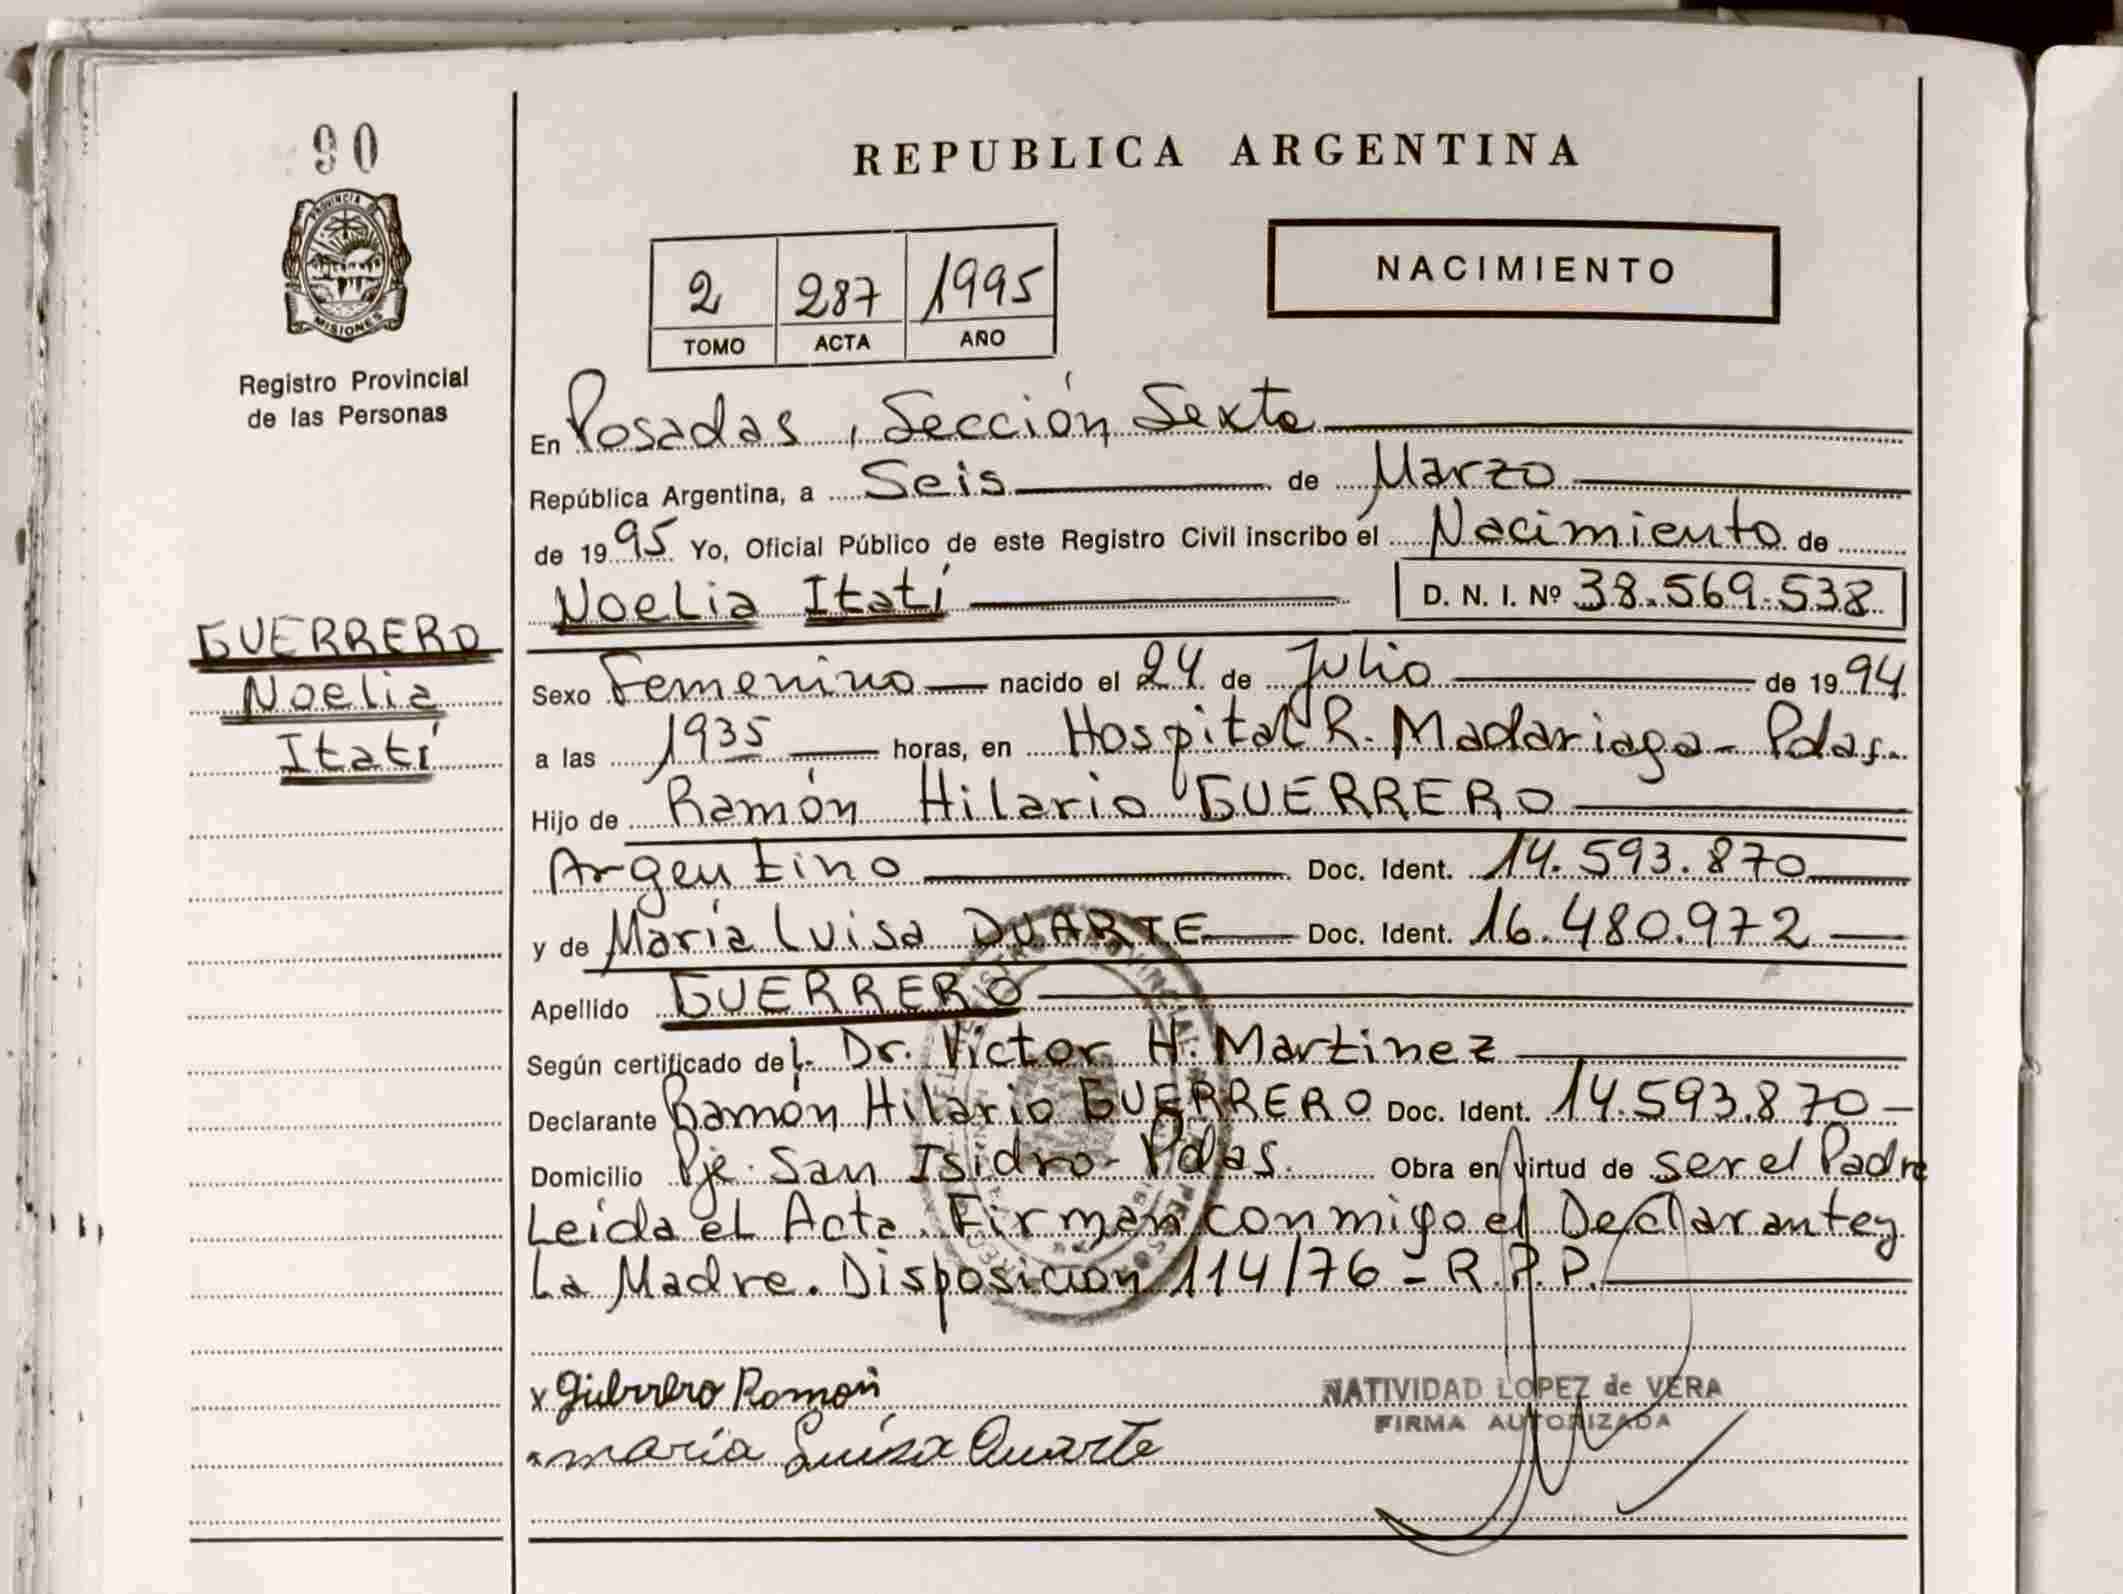 90
PROVINCIA DE
MISIONES
Registro Provincial
de las Personas
GUERRERO
Noelia
Itatí
REPUBLICA ARGENTINA
2 287 1995
TOMO ACTA AÑO
NACIMIENTO
En Posadas, Sección Sexta
República Argentina, a Seis de Marzo
de 1995 Yo, Oficial Público de este Registro Civil inscribo el Nacimiento de
Noelia Itatí D. N. I. Nº 38.569.538
Sexo Femenino nacido el 24 de Julio de 1994
a las 1935 horas, en Hospital R. Madariaga - Pdas.
Hijo de Ramón Hilario GUERRERO
Argentino Doc. Ident. 14.593.870
y de María Luisa DUARTE Doc. Ident. 16.480.972
Apellido GUERRERO
Según certificado del. Dr. Victor H. Martinez
Declarante Ramón Hilario GUERRERO Doc. Ident. 14.593.870
Domicilio Pje. San Isidro - Pdas. Obra en virtud de ser el Padre
Leída el Acta. Firman conmigo el Declarante y
La Madre. Disposición 114/76 - R.P.P.
x Guerrero Ramón
maría Luisa Duarte
NATIVIDAD LOPEZ de VERA
FIRMA AUTORIZADA